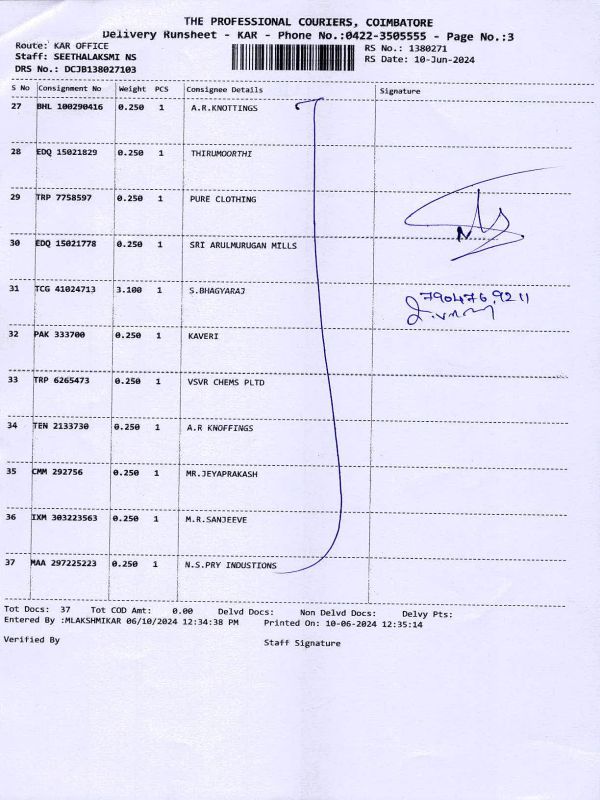 THE PROFESSIONAL COURIERS, COIMBATORE
Delivery Runsheet - KAR - Phone No.:0422-3505555 - Page No.:3
Route: KAR OFFICE RS No.: 1380271
Staff: SEETHALAKSMI NS RS Date: 10-Jun-2024
DRS No.: DCJB138027103
S No Consignment No Weight PCS Consignee Details Signature
27 BHL 100290416 0.250 1 A.R.KNOTTINGS
28 EDQ 15021829 0.250 1 THIRUMOORTHI
29 TRP 7758597 0.250 1 PURE CLOTHING
30 EDQ 15021778 0.250 1 SRI ARULMURUGAN MILLS
31 TCG 41024713 3.100 1 S.BHAGYARAJ 790476,9211
32 PAK 333700 0.250 1 KAVERI
33 TRP 6265473 0.250 1 VSVR CHEMS PLTD
34 TEN 2133730 0.250 1 A.R KNOFFINGS
35 CMM 292756 0.250 1 MR.JEYAPRAKASH
36 IXM 303223563 0.250 1 M.R.SANJEEVE
37 MAA 297225223 0.250 1 N.S.PRY INDUSTIONS
Tot Docs: 37 Tot COD Amt: 0.00 Delvd Docs: Non Delvd Docs: Delvy Pts:
Entered By :MLAKSHMIKAR 06/10/2024 12:34:38 PM Printed On: 10-06-2024 12:35:14
Verified By Staff Signature